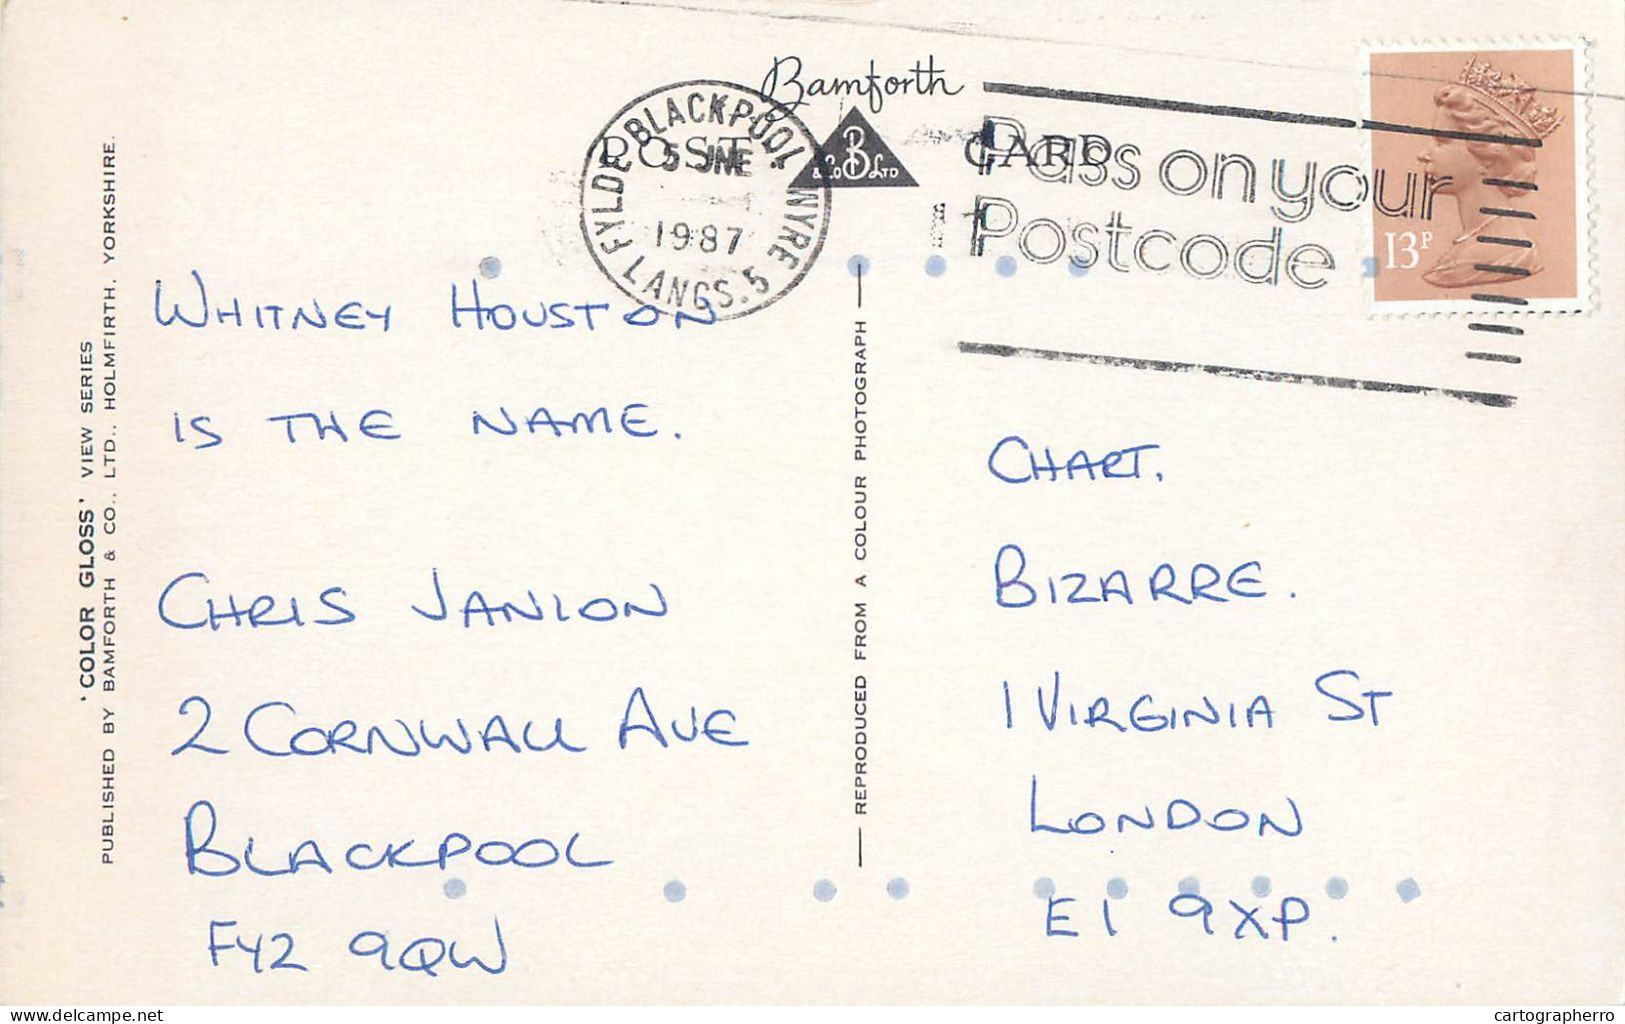 Bamforth
POST CARD
B
& CO LTD
BLACKPOOL WYRE
FYLDE
5 JNE
1987
LANCS. 5
Pass on your
Postcode
13P
WHITNEY HOUSTON
IS THE NAME.
CHRIS JANION
2 CORNWALL AVE
BLACKPOOL
FY2 9QW
CHART.
BIZARRE.
1 VIRGINIA ST
LONDON
E1 9XP.
'COLOR GLOSS' VIEW SERIES
PUBLISHED BY BAMFORTH & CO., LTD., HOLMFIRTH, YORKSHIRE.
REPRODUCED FROM A COLOUR PHOTOGRAPH
www.delcampe.net
cartographerro